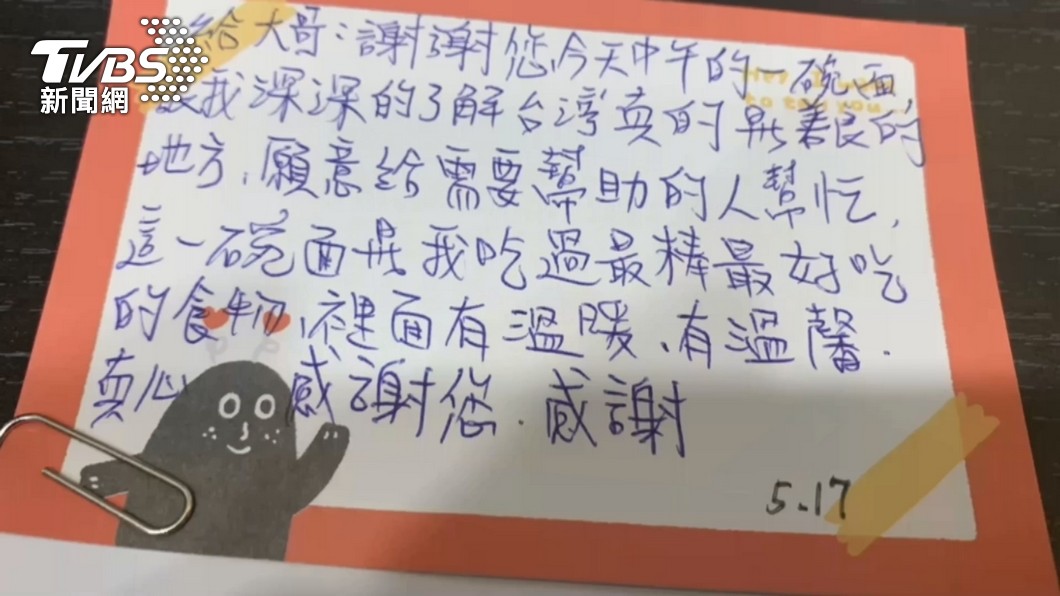 TVBS
新聞網
給大哥:謝謝您今天中午的一碗面,
我深深的了解台灣真的是善良的
地方、願意給需要幫助的人幫忙,
這一碗面是我吃過最棒最好吃
的食物、裡面有溫暖、有溫馨.
真心 感謝您.感謝
5.17